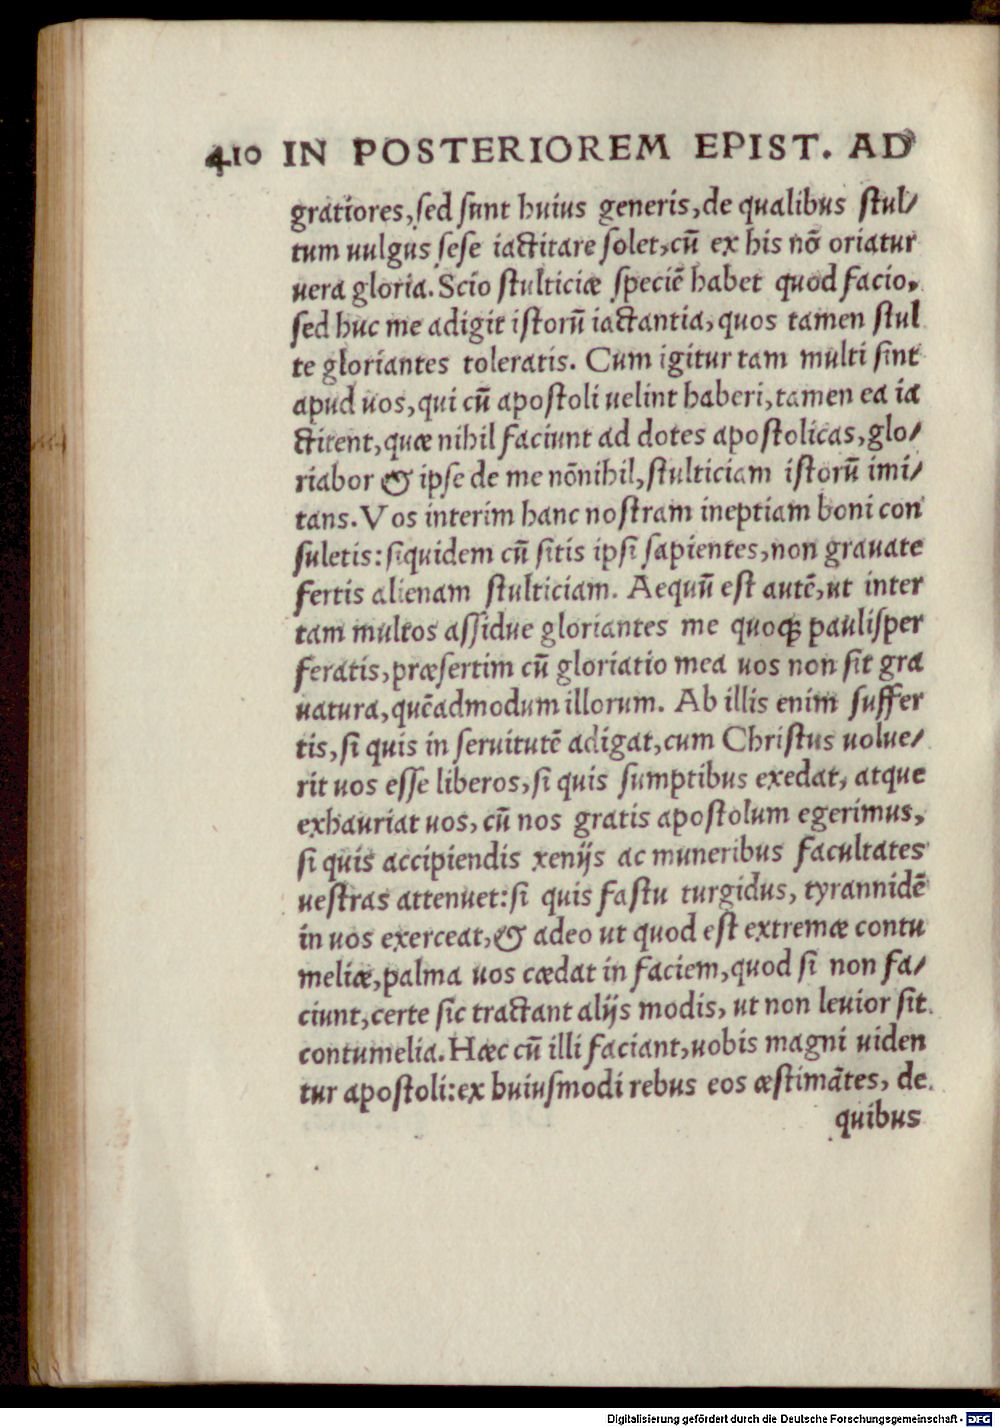 410 IN POSTERIOREM EPIST. AD
gratiores, sed sunt huius generis, de qualibus stul/
tum uulgus sese iactitare solet, cū ex his nō oriatur
uera gloria. Scio stulticiæ speciē habet quod facio,
sed huc me adigit istorū iactantia, quos tamen stul
te gloriantes toleratis. Cum igitur tam multi sint
apud uos, qui cū apostoli uelint haberi, tamen ea ia
ctitent, quæ nihil faciunt ad dotes apostolicas, glo/
riabor & ipse de me nōnihil, stulticiam istorū imi/
tans. Vos interim hanc nostram ineptiam boni con
suletis: siquidem cū sitis ipsi sapientes, non grauate
fertis alienam stulticiam. Aequū est autē, ut inter
tam multos assidue gloriantes me quoqꝫ paulisper
feratis, præsertim cū gloriatio mea uos non sit gra
uatura, quēadmodum illorum. Ab illis enim suffer
tis, si quis in seruitutē adigat, cum Christus uolue/
rit uos esse liberos, si quis sumptibus exedat, atque
exhauriat uos, cū nos gratis apostolum egerimus,
si quis accipiendis xenijs ac muneribus facultates
uestras attenuet: si quis fastu turgidus, tyrannidē
in uos exerceat, & adeo ut quod est extremæ contu
meliæ, palma uos cædat in faciem, quod si non fa/
ciunt, certe sic tractant alijs modis, ut non leuior sit
contumelia. Hæc cū illi faciant, uobis magni uiden
tur apostoli: ex huiusmodi rebus eos æstimātes, de
quibus
Digitalisierung gefördert durch die Deutsche Forschungsgemeinschaft - DFG